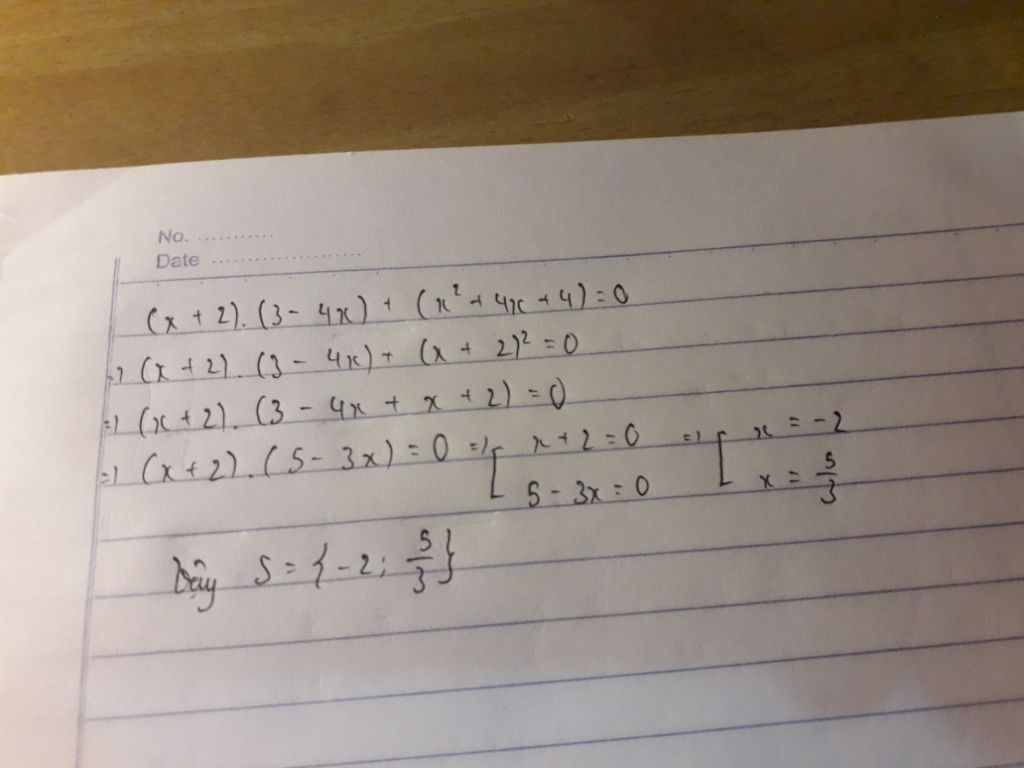 No. ...........
Date ......................
(x + 2).(3 - 4x) + (x² + 4x + 4) = 0
=> (x + 2).(3 - 4x) + (x + 2)² = 0
=> (x + 2).(3 - 4x + x + 2) = 0
=> (x + 2).(5 - 3x) = 0 => [ x + 2 = 0 => [ x = -2
5 - 3x = 0 x = 5/3
Vậy S = {-2; 5/3}